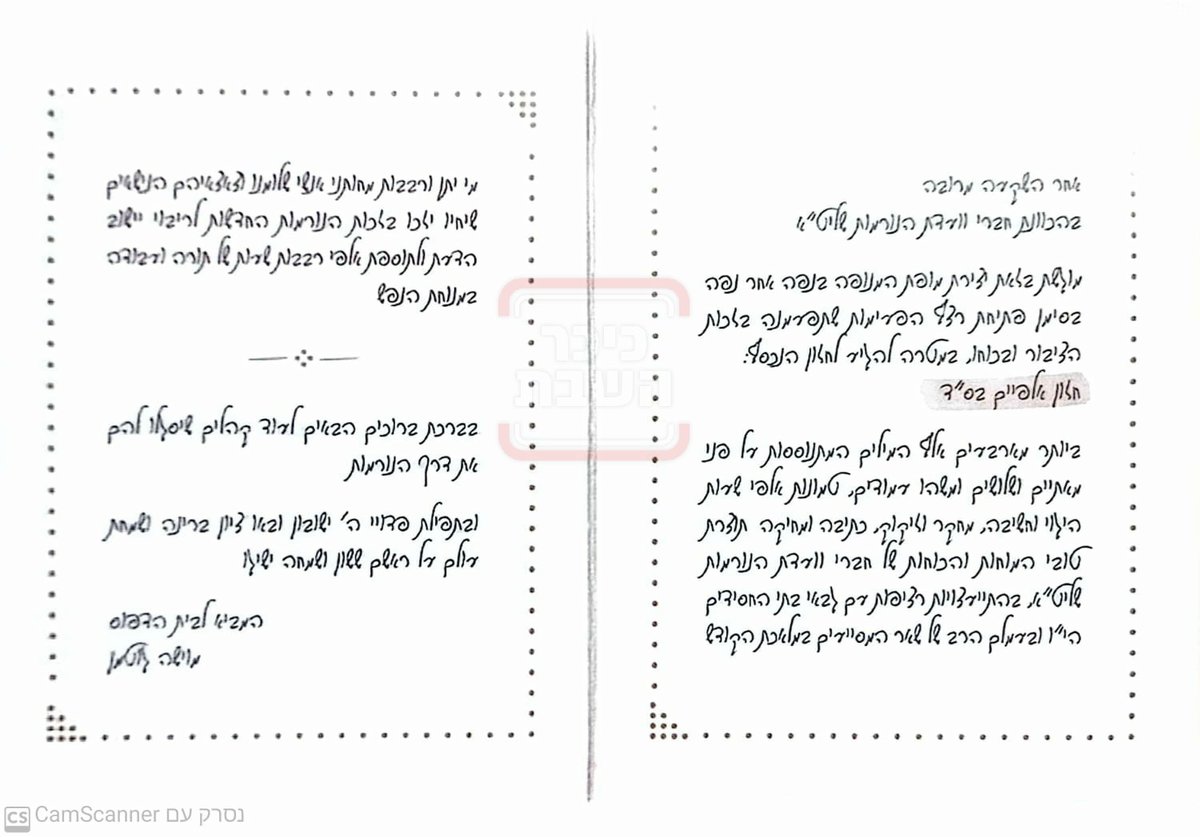 אחר השקעה מרובה
בהכוונת חברי וועדת הנורמות שליט"א
מוגשת בזאת יצירת מופת המנופה בנפה אחר נפה
בסימן פתיחת רצף הפעימות שתפעמנה בזכות
הציבור ובכוחו, במטרה להגיע לחזון הנכסף:
חזון אלפיים בס"ד
ביותר מארבעים אלף המילים המתנוססות על פני
מאתיים ושלושים ומשהו עמודים, טמונות אלפי שעות
היגוי וחשיבה, מחקר וזיקוק, כתיבה ומחיקה תוצרת
טובי המוחות והכוחות של חברי וועדת הנורמות
שליט"א, בהתייעצויות רציפות עם גבאי בתי החסידים
הי"ו ובעמלם הרב של שאר המסייעים במלאכת הקודש
מי יתן ורבבות מחותני אנשי שלומנו וצאצאיהם הנישאים
שיחיו יזכו בזכות הנורמות החדשות לריבוי יישוב
הדעת ולתוספת אלפי רבבות שעות של תורה ועבודה
במנוחת הנפש
בברכת ברוכים הבאים לעוד קהלים שיסגלו להם
את דרך הנורמות
ובתפילת פדויי ה' ישובון ובאו ציון ברינה ושמחת
עולם על ראשם ששון ושמחה ישיגו
המביא לבית הדפוס
מוישה גוטמן
כיכר
השבת
CS CamScanner נסרק עם